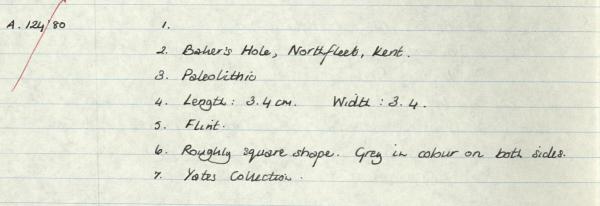 A. 124/80
1.
2. Baker's Hole, Northfleet, Kent.
3. Paleolithic
4. Length: 3.4 cm. Width: 3.4.
5. Flint.
6. Roughly square shape. Grey in colour on both sides.
7. Yates Collection.